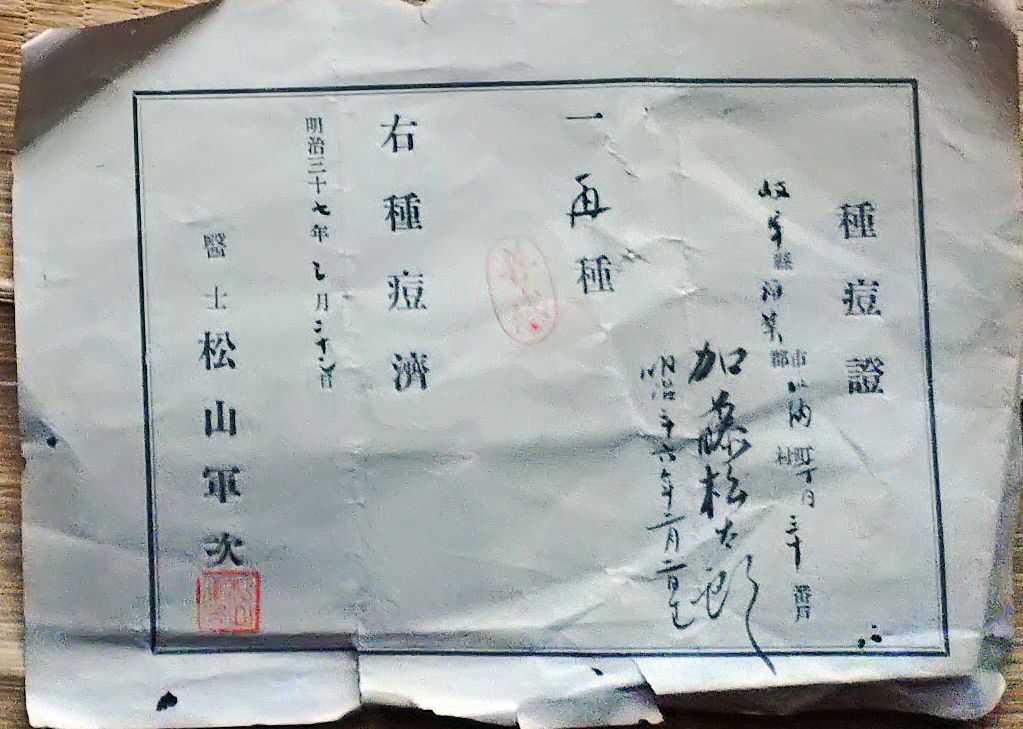 種痘證
岐阜縣 市郡 町村 三十 番戸
加藤松太郎
明治三十六年二月二日生
一再種
右種痘濟
明治三十七年 月二十 日
醫士 松山軍次